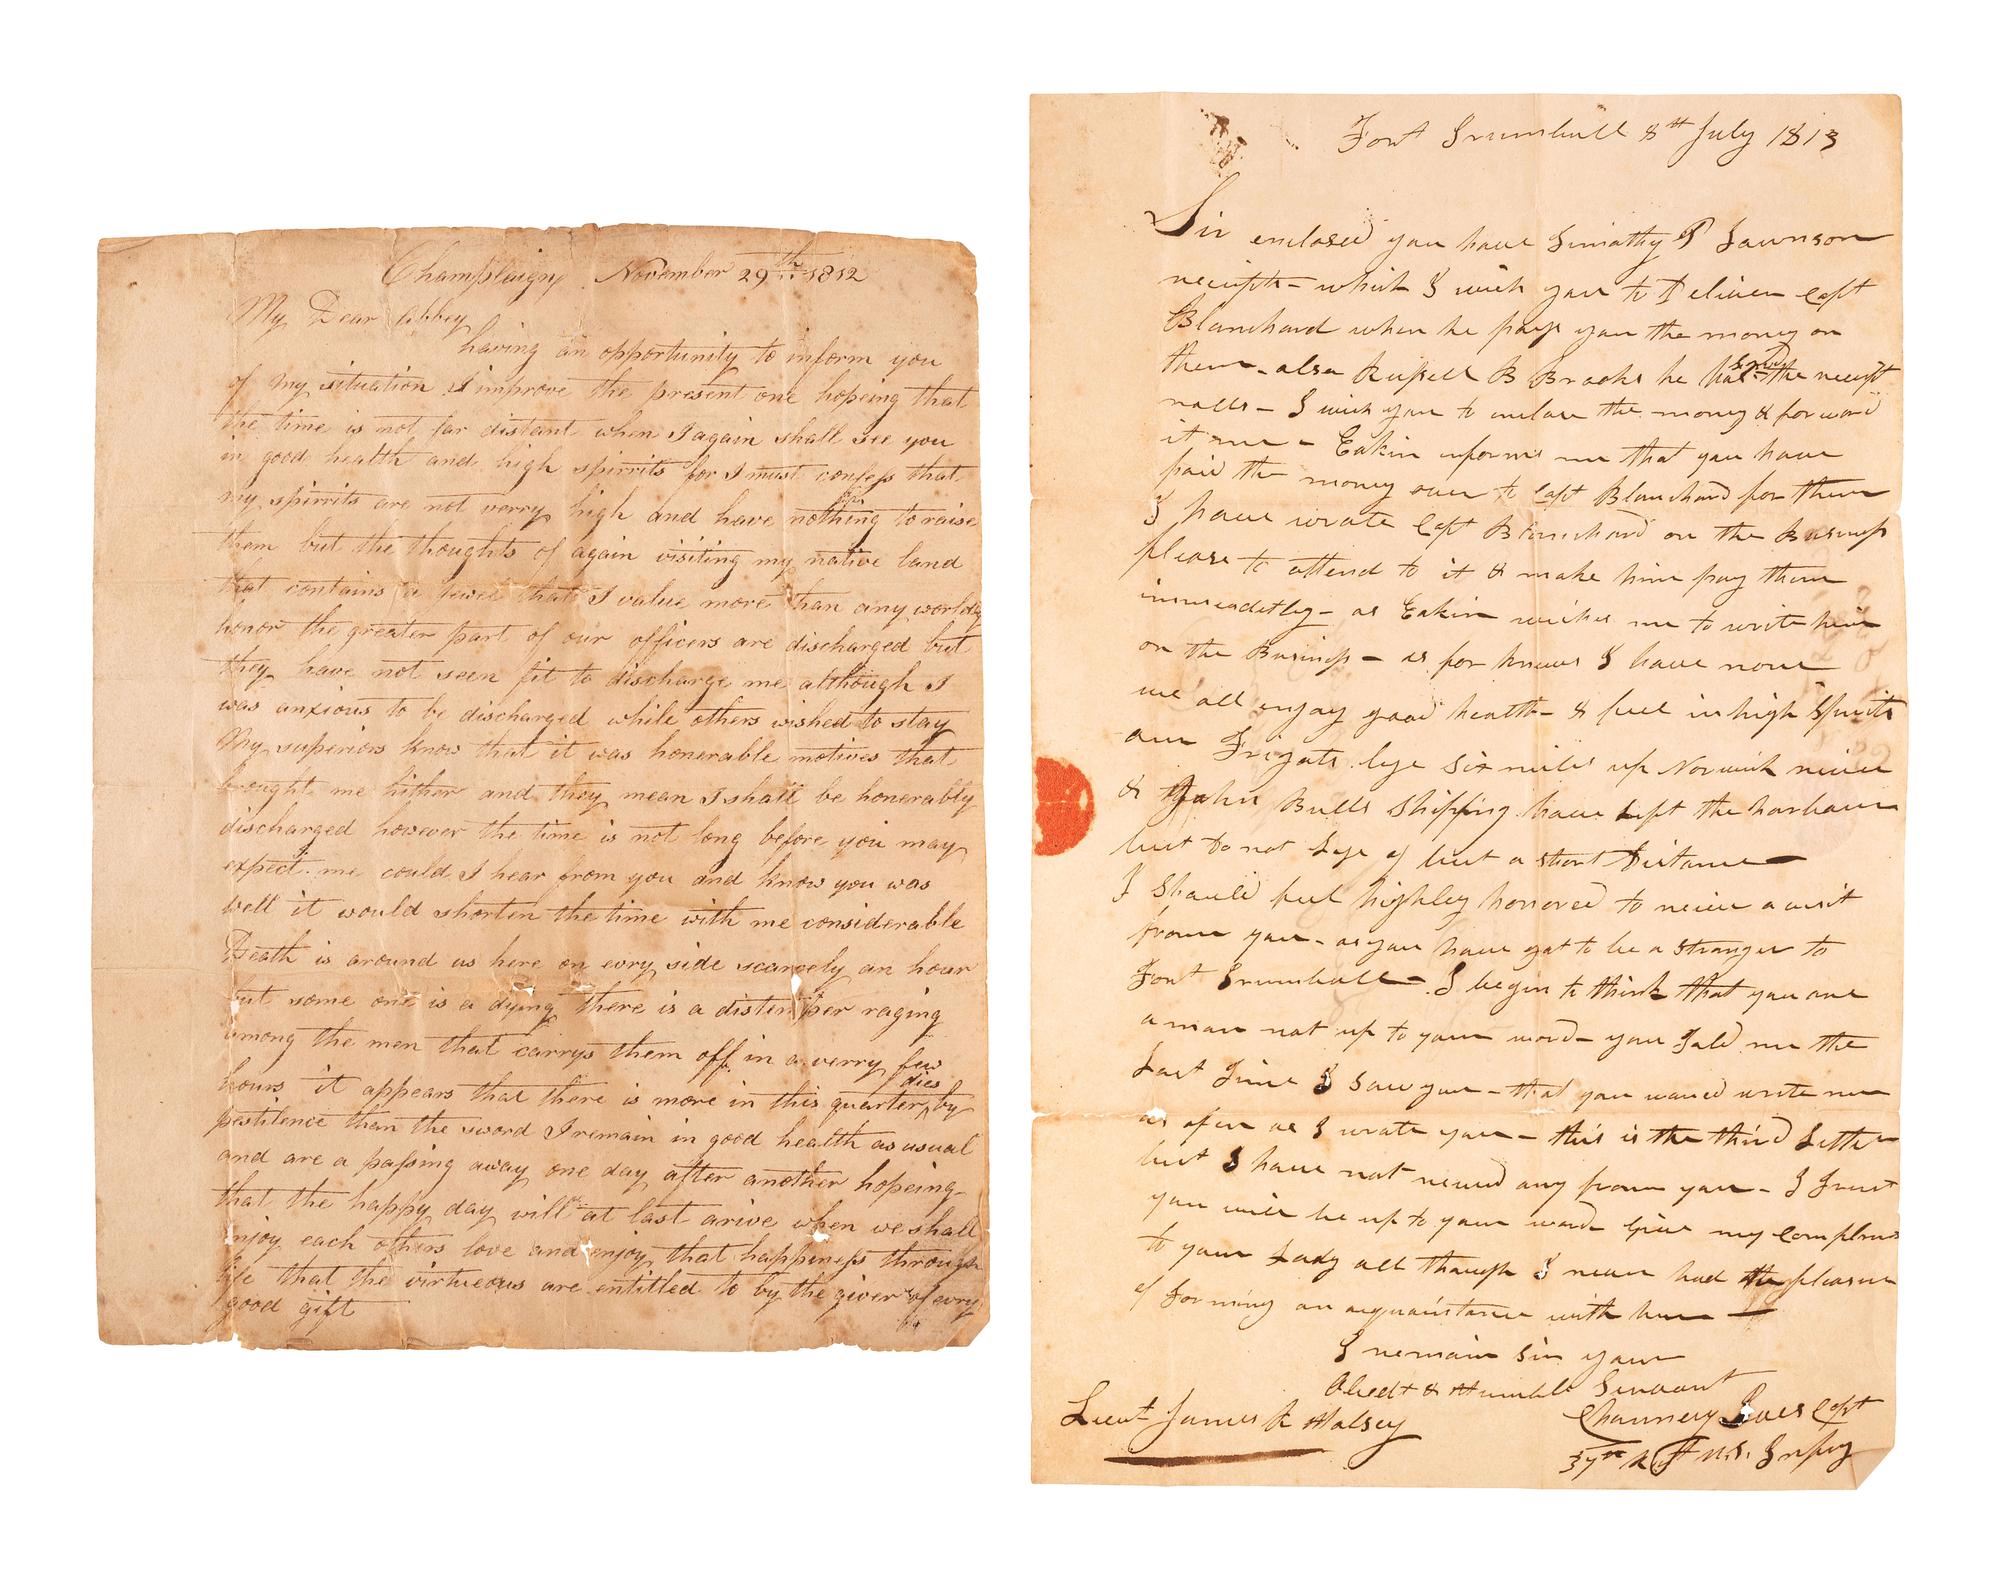 Champlaigny November 29th 1812
My Dear Abbey
having an opportunity to inform you
of my situation I improve the present one hopeing that
the time is not far distant when I again shall see you
in good health and high spirrits for I must confess that
my spirrits are not verry high and have nothing to raise
them but the thoughts of again visiting my native land
that contains a jewel that I value more than any worldly
honor the greater part of our officers are discharged but
they have not seen fit to discharge me although I
was anxious to be discharged while others wished to stay
My superiors know that it was honerable motives that
brought me hither and they mean I shall be honerably
discharged however the time is not long before you may
expect me could I hear from you and know you was
well it would shorten the time with me considerable
Death is around us here on evry side scarcely an hour
but some one is a dying there is a distemper raging
among the men that carrys them off in a verry few
hours it appears that there is more in this quarter dies by
pestilence than the sword I remain in good health as usual
and are a passing away one day after another hopeing
that the happy day will at last arive when we shall
enjoy each others love and enjoy that happiness through
life that the virtueous are entitled to by the giver of evry
good gift
Fort Trumbull 8th July 1813
Sir enclosed you have Timothy P Townson
receipts - which I wish you to Deliver Capt
Blanchard when he pays you the money on
them - also Russell B Brooks he has the receipt
rolls - I wish you to enclose the money & forward
it me - Eakin informs me that you have
paid the money over to Capt Blanchard for them
I have wrote Capt Blanchard on the Business
please to attend to it & make him pay them
immeadetley - as Eakin wishes me to write him
on the Business - as for knews I have none
we all enjoy good health - & feel in high Spirits
our Frigats lye six miles up Norwich river
& John Bulls Shipping have left the harbour
but Do not Lye of but a short Distance
I Should feel highley honored to receive a visit
from you - as you have got to be a stranger to
Fort Trumbull - I begin to think that you are
a man not up to your word - you Told me the
Last Time I saw you - that you would wrote me
as ofen as I wrote you - this is the third Letter
but I have not received any from you - I Trust
you will be up to your word Give my Complem
to your Lady all though I never had the pleasure
of Forming an acquaintance with her
I remain Sir your
Obedt & Humble Servant
Lieut James R Halsey
Chauncey Ives Capt
37th Regt U.S. Infry